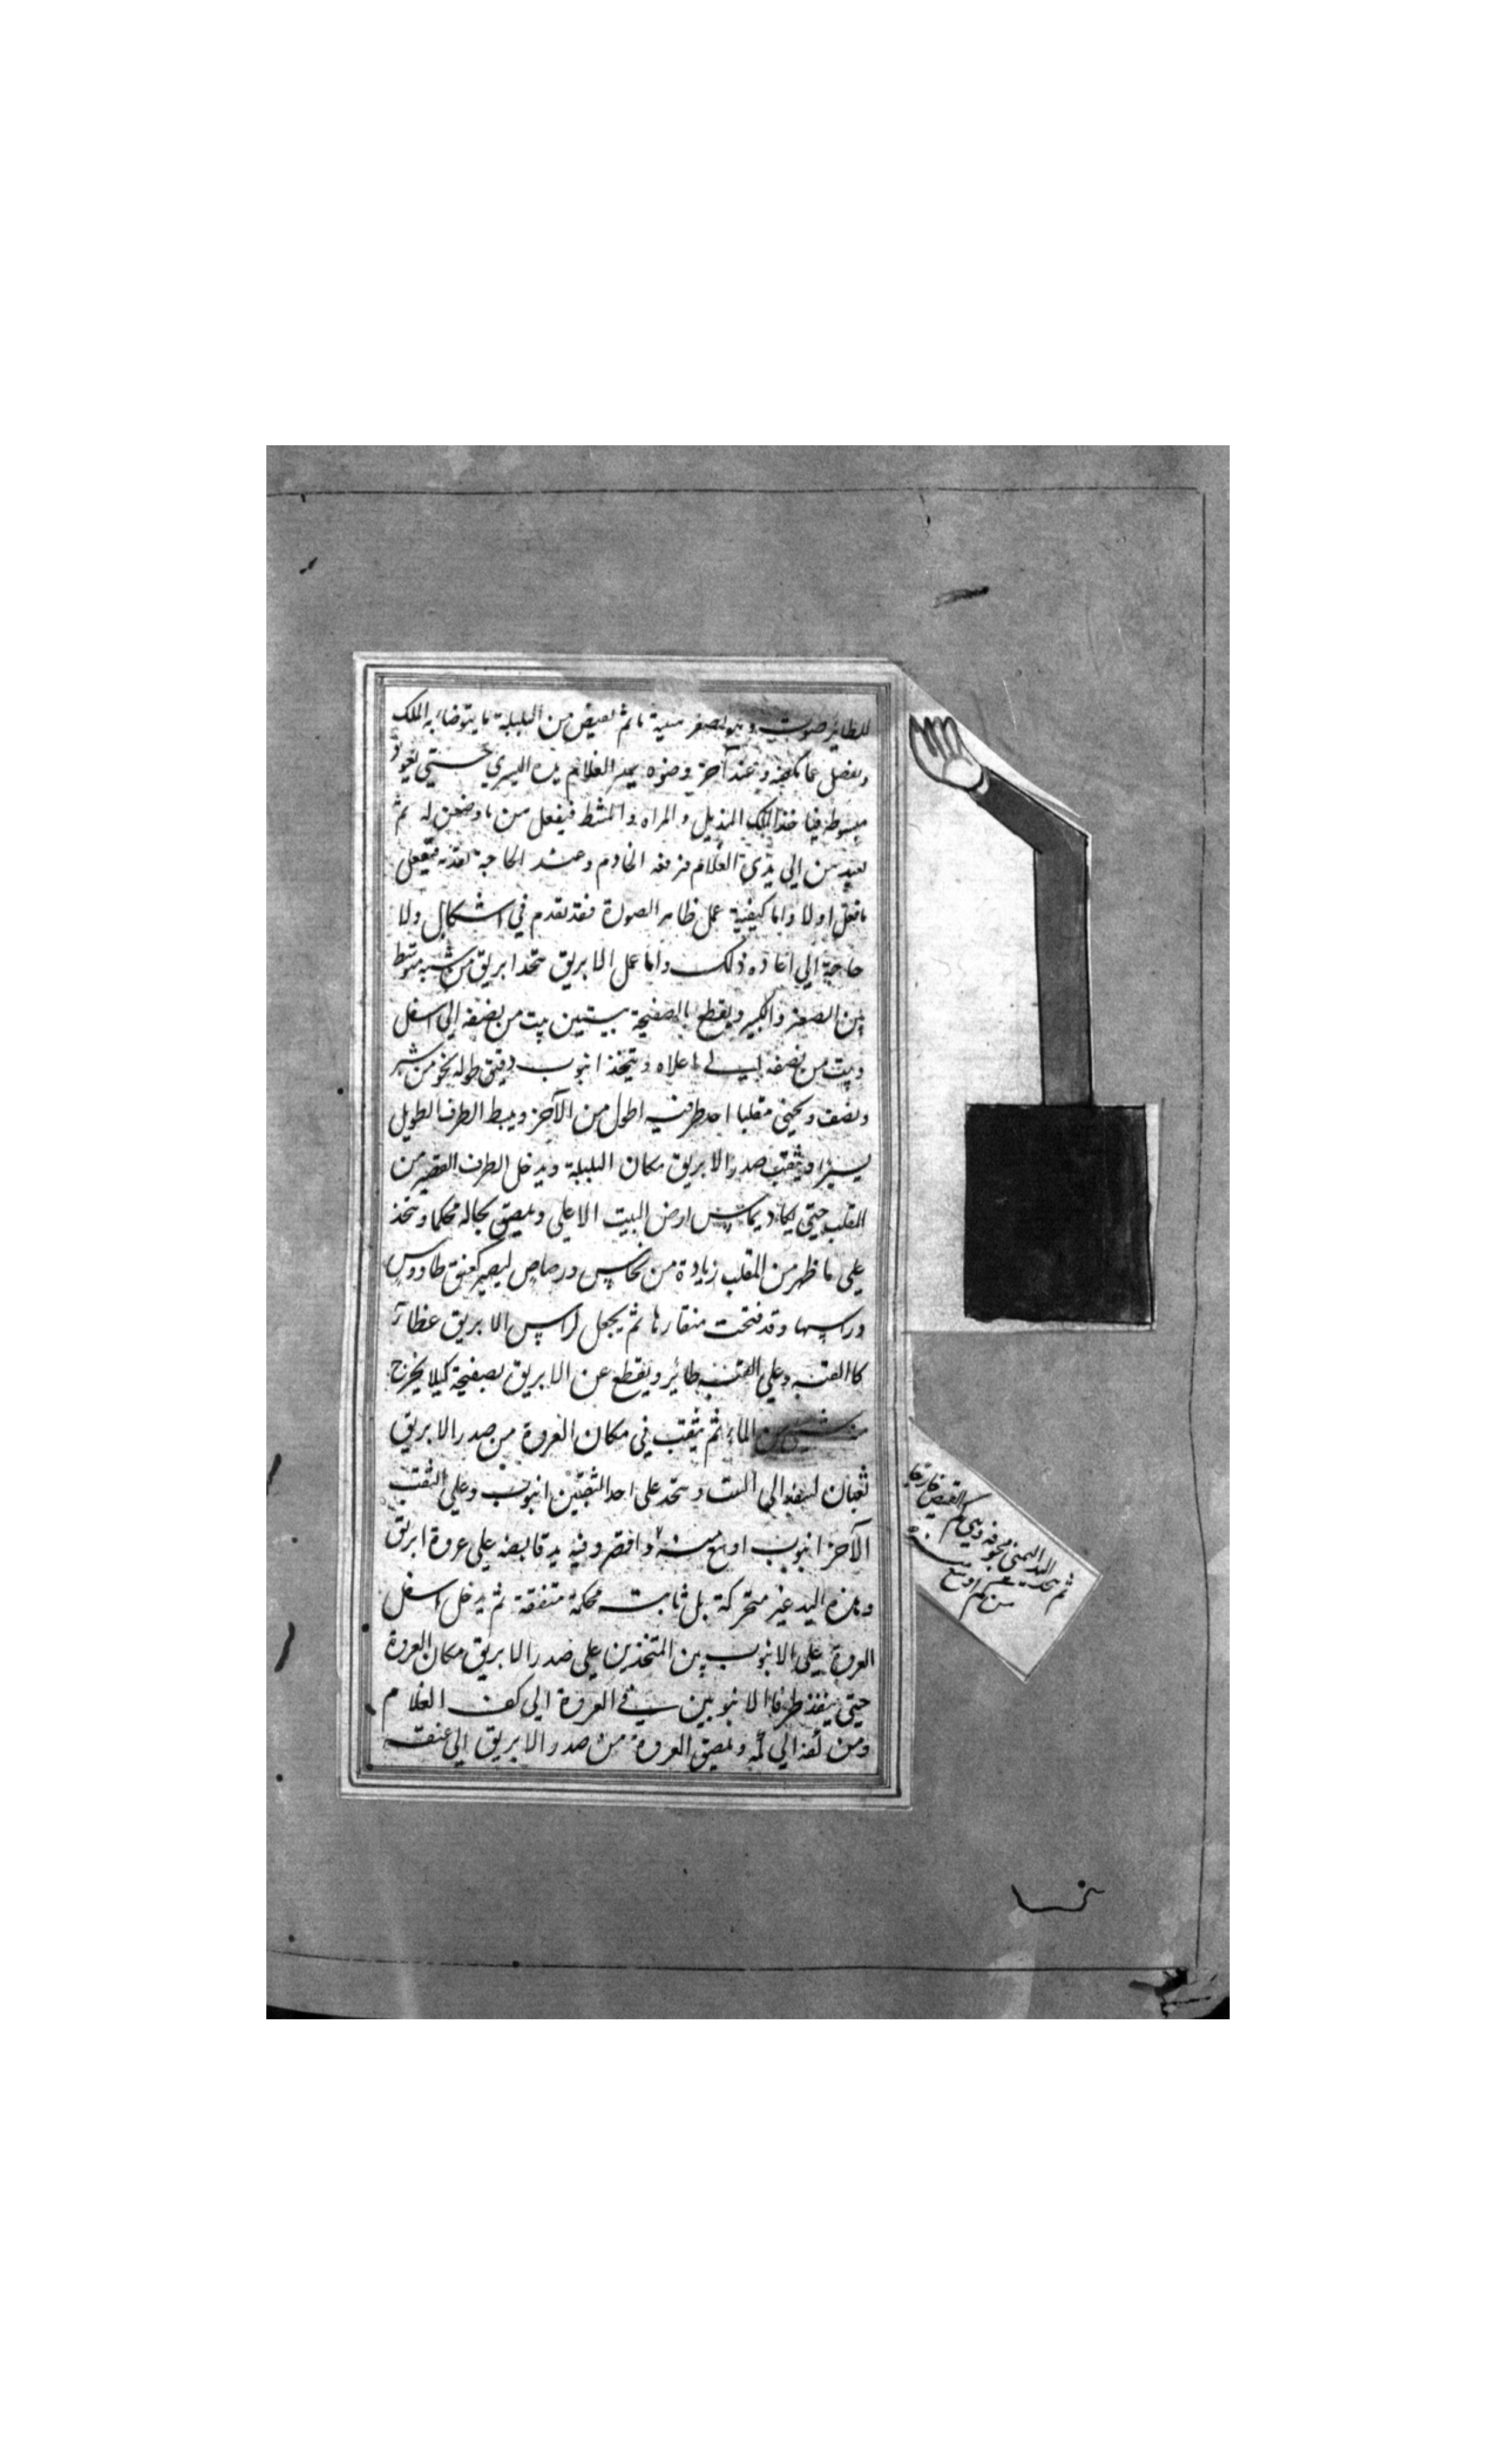 للطائر صوت وهو يصفر مدة ما ثم يفيض من البلبلة ما يتوضاء به الملك
ويفضل عما وعند آخر وضوه يمد الغلام يده اليسري حتي تعود
مبسوطه فياخذ الملك المنديل والمراه والمشط فيفعل من ما وضعن له ثم
يعيدهن الي يدي الغلام فرفعه الخادم وعند الحاجة فيفعل
ما فعل اولا واما كيفية عمل ظاهر الصورة فقد تقدم في اشكال ولا
حاجة الي اعاده ذلك واما عمل الابريق يتخذ ابريق من شبه متوسط
بين الصغر والكبر ويقطع بالصفيحة ببيتين بيت من نصفه الي اسفل
وبيت من نصفه الي اعلاه ويتخذ انبوب دقيق طوله نحو من شبر
ونصف ويحني مقلبا احد طرفيه اطول من الآخر ويبط الطرف الطويل
يسيرا ويثقب صدر الابريق مكان البلبلة ويدخل الطرف القصير من
المقلب حتي يكاد يماس ارض البيت الاعلي ويلصق بحاله محكما ويتخذ
علي ما ظهر من المقلب زيادة من نحاس ورصاص ليصير كعنق طاووس
وراسها وقد فتحت منقارها ثم يجعل لراس الابريق غطآء
كاالقبه وعلي القبه طائر ويقطع عن الابريق بصفيحة كيلا يخرج
منه شي من الماء ثم يثقب في مكان العروة من صدر الابريق
ثقبان لينفذ الي البيت ويتخذ علي احد الثقبين انبوب وعلي الثقب
الآخر انبوب اوسع منه واقصر وفيه يد قابضه علي عروة ابريق
وهذه اليد غير متحركة بل ثابته محكمة متفقة ثم يدخل اسفل
العروة علي الانبوبين المتخذين علي صدر الابريق مكان العروة
حتي ينفذ طرفا الانبوبين في العروة الي كف الغلام
ومن كفه الي كمه ويلصق العروة من صدر الابريق الي عنقه
ثم يتخذ اليد اليمني مجوفه وهي كم القميص فارقا
من كم اوسع منه